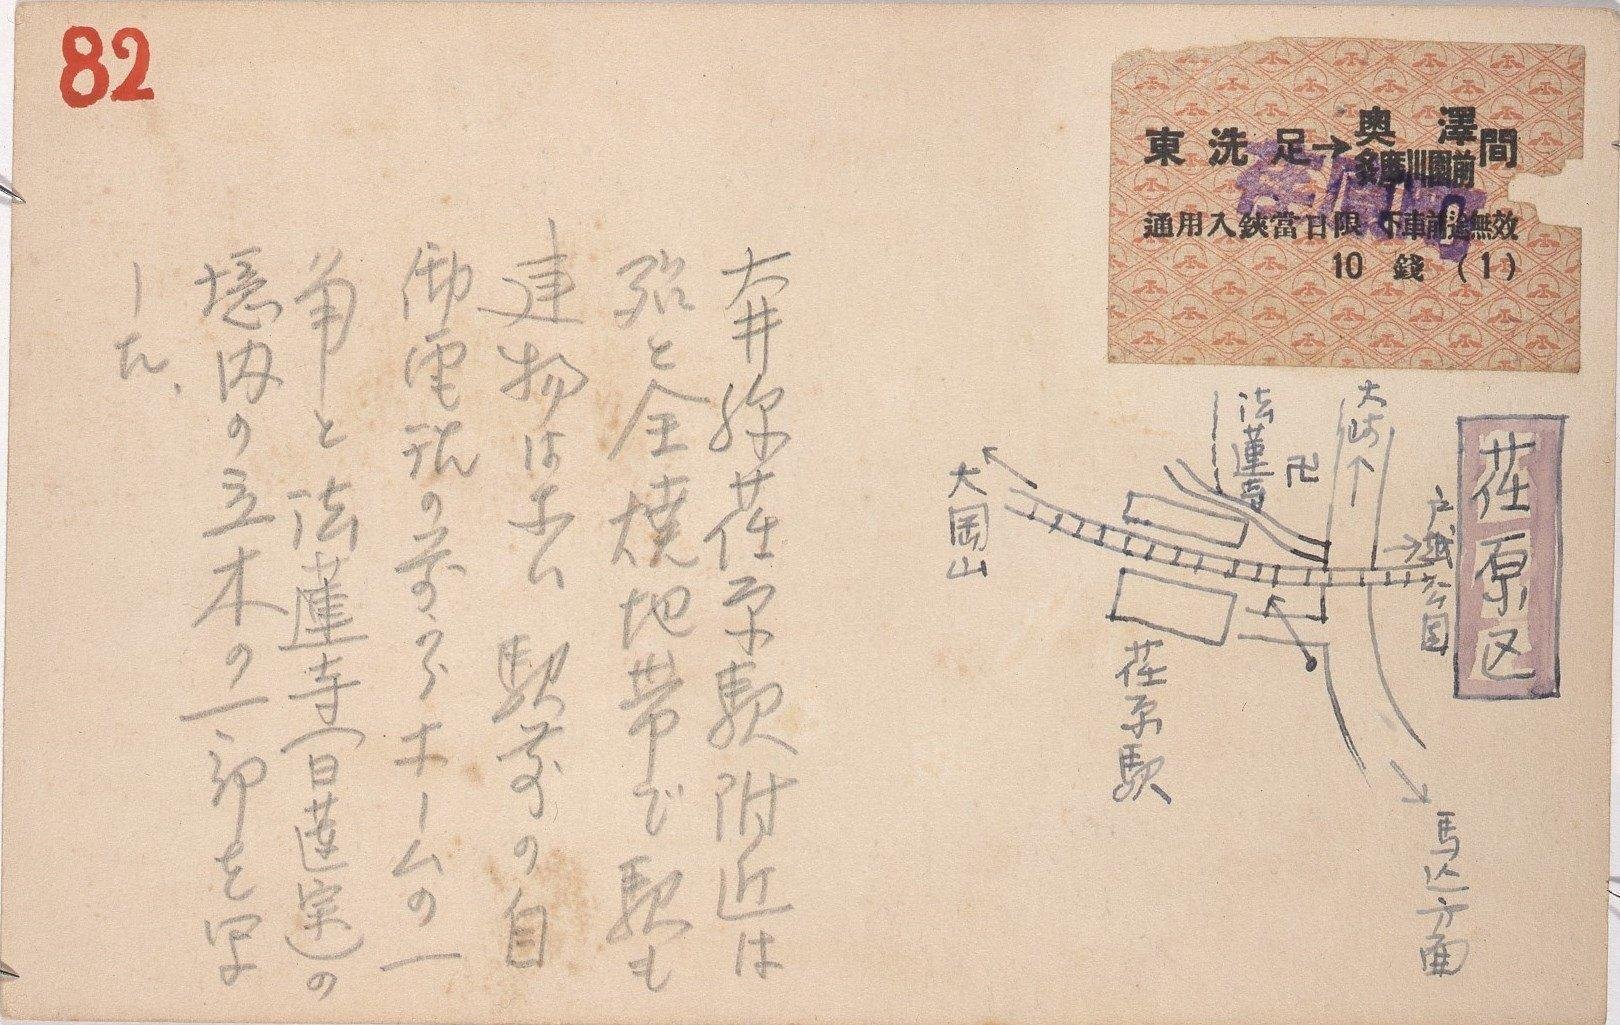 82
東洗足→奥澤間
多摩川園前
通用入鋏當日限 下車前途無效
10 錢 (1)
荏原区
戸越公園
大崎
卍
法蓮寺
大岡山
荏原駅
馬込方面
大井線荏原駅附近は
殆と全焼地帯で駅も
建物はなし 駅前の自
働電話の前からホームの一
角と法蓮寺(日蓮宗)の
境内の立木の一部を写
した、